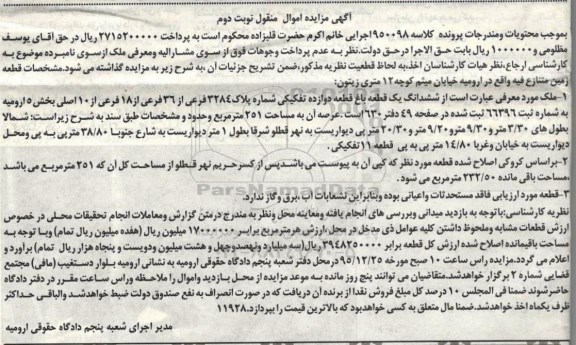 آگهی مزایده اموال منقول نوبت دوم
بموجب محتویات ومندرجات پرونده کلاسه ۹۵۰۰۹۸ اجرایی خانم اکرم حضرت قلیزاده محکوم است به پرداخت ۲۷۱۵۲۰۰۰۰۰ ریال در حق اقای یوسف
مظلومی و ۱۰۰۰۰۰۰ ریال بابت حق الاجرا درحق دولت.نظر به عدم پرداخت وجوهات فوق از سوی مشارالیه ومعرفی ملک ازسوی نامبرده موضوع به
کارشناسی ارجاع.نظر هیات کارشناسان اخذ.به لحاظ قطعیت نظریه مذکور،ضمن تشریح جزئیات آن ،به شرح زیر به مزایده گذاشته می شود.مشخصات قطعه
زمین متنازع فیه واقع در ارومیه خیابان میثم کوچه ۱۲ متری زیتون:
۱-ملک مورد معرفی عبارت است از ششدانگ یک قطعه باغ قطعه دوازده تفکیکی شماره پلاک ۳۲۸۴ فرعی از ۳۶ فرعی از ۱۸ فرعی از ۱۰ اصلی بخش ۵ ارومیه
به شماره ثبت ۶۶۳۹۶ ثبت شده در صفحه ۴۹ دفتر ۶۳۰ است .عرصه آن به مساحت ۲۵۱ مترمربع وحدود و مشخصات طبق سند به شرح زیراست: شمالا
بطول های ۳/۳۰ متر و ۹/۳۰ مترو ۹/۲۰ متر و ۲۰/۳۰ متر پی دیواریست به نهر قطلو شرقا بطول ۱ متر دیواریست به شارع جنوبا ۳۸/۸۰ مترپی به پی ومحل
دیواریست به خیابان وغربا ۱۴/۸۰ متر پی به پی قطعه ۱۱ تفکیکی.
۲-براساس کروکی اصلاح شده قطعه مورد نظر که کپی آن به پیوست می باشد.پس از کسر حریم نهر قطلو از مساحت کل آن که ۲۵۱ مترمربع می باشد
،مساحت باقی مانده ۲۳۲/۵۰ مترمربع می شود.
۳-قطعه مورد ارزیابی فاقد مستحدثات واعیانی بوده وبنابراین نشعابات آب ،برق وگاز ندارد.
نظریه کارشناسی:با توجه به بازدید میدانی وبررسی های انجام یافته ومعاینه محل ونظر به مندرج درمتن گزارش ومعاملات انجام تحقیقات محلی در خصوص
ارزش قطعات مشابه وملحوظ داشتن کلیه عوامل ذی مدخل در محل ،ارزش هرمترمربع برابر ۱۷۰۰۰۰۰۰ میلیون ریال (هفده میلیون ریال تمام) وبا توجه به
مساحت باقیمانده اصلاح شده ارزش کل قطعه برابر ۳۹۴۸۲۵۰۰۰۰ ریال(سه میلیارد ونهصدوچهل و هشت میلیون ودویست و پنجاه هزار ریال تمام) برآورد و
اعلام می گردد.مزایده راس ساعت ۱۰ صبح مورخه ۹۵/۱۲/۲۵ درمحل دفتر شعبه پنجم دادگاه حقوقی ارومیه به نشانی ارومیه بلوار دستغیب (مافی) مجتمع
قضایی شماره ۲ برگزار خواهدشد.متقاضیان می توانند پنج روز مانده به موعد مزایده از محل بازدید واموال را ملاحظه وراس ساعت مقرر در دفتر دادگاه
حاضرشوند ضمنا فی المجلس ۱۰ درصد کل مبلغ فروش نقدا از برنده آن دریافت که در صورت انصراف به نفع صندوق دولت ضبط خواهدشد والباقی حداکثر
ظرف یکماه اخذ خواهدشد.ضمنا مال متعلق به کسی خواهدبود که بالاترین قیمت را بپردازد. ۱۱۹۲۸
مدیر اجرای شعبه پنجم دادگاه حقوقی ارومیه